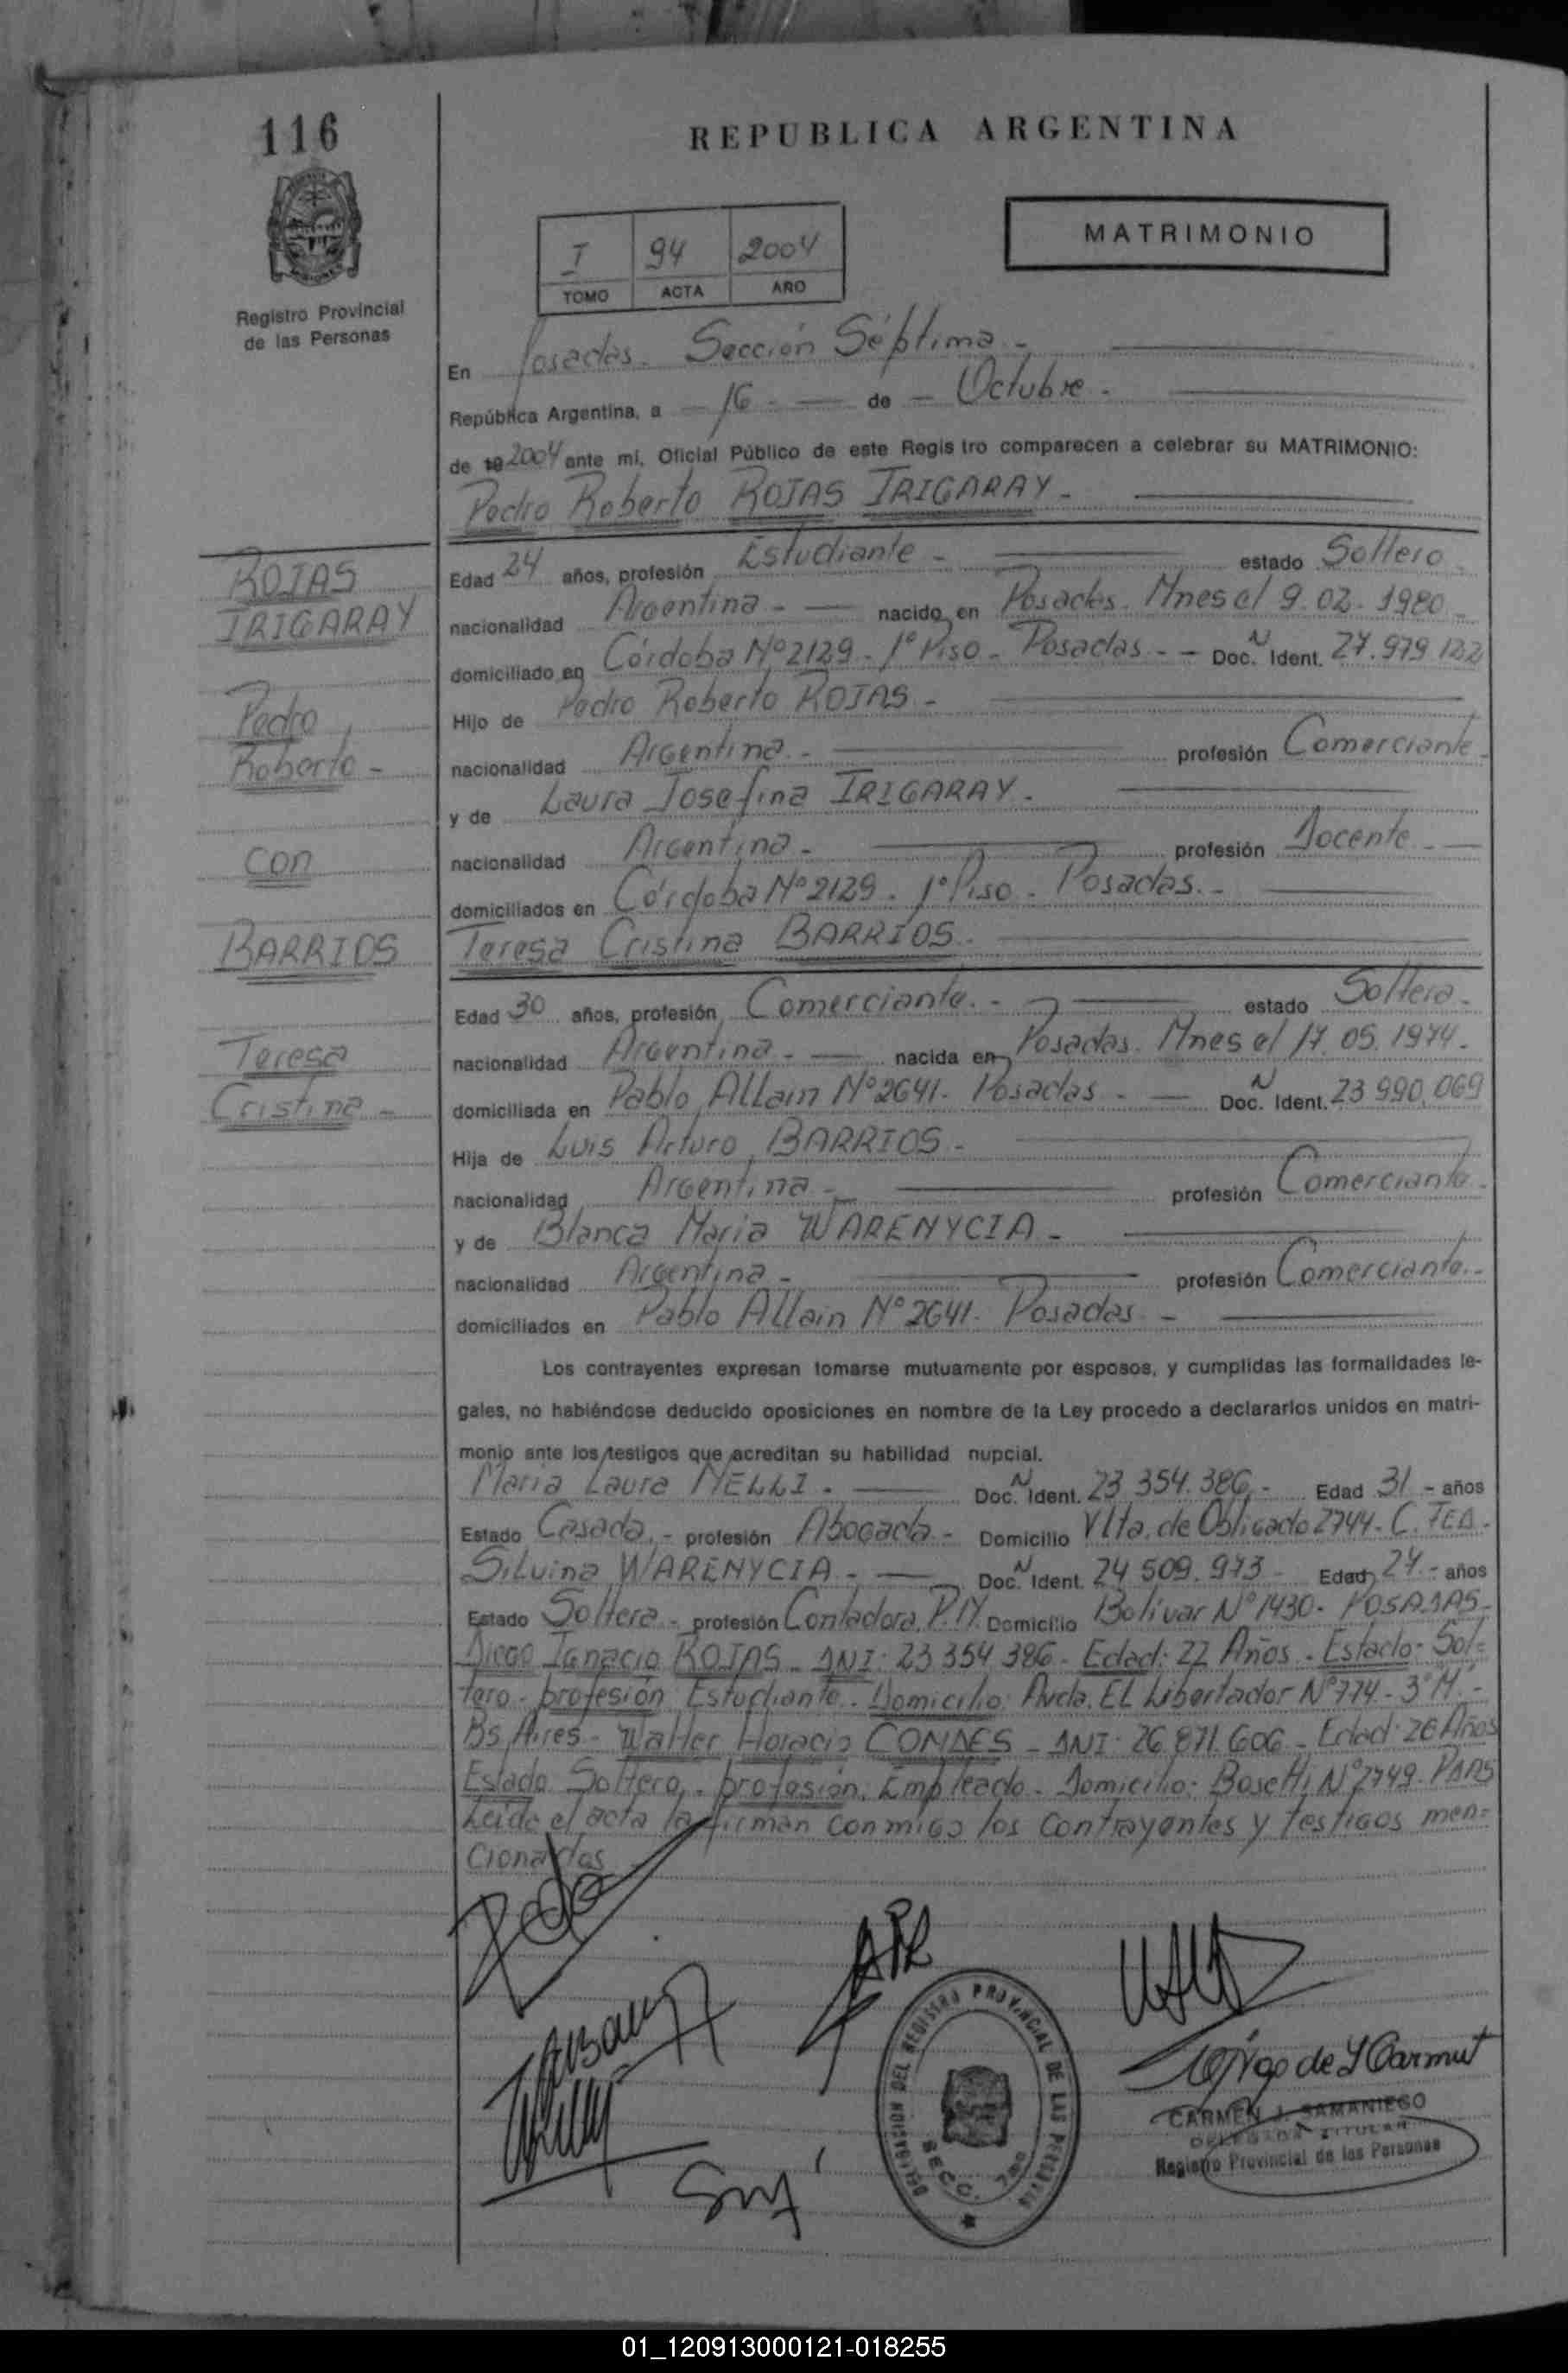 116
REPUBLICA ARGENTINA
MATRIMONIO
I 94 2004
TOMO ACTA AÑO
Registro Provincial
de las Personas
En Posadas. Sección Séptima.-
República Argentina, a - 16 - de - Octubre.
de 19 2004 ante mí, Oficial Público de este Regis tro comparecen a celebrar su MATRIMONIO:
Pedro Roberto ROJAS IRIGARAY.
Edad 24 años, profesión Estudiante - estado Soltero
nacionalidad Argentina - nacido en Posadas. Mnes el 9.02.1980
domiciliado en Córdoba Nº 2129 - 1º Piso - Posadas - - Doc. N Ident. 27.979.122
Hijo de Pedro Roberto ROJAS -
nacionalidad Argentina.- profesión Comerciante -
y de Laura Josefina IRIGARAY.
nacionalidad Argentina - profesión Docente -
domiciliados en Córdoba Nº 2129 - 1º Piso - Posadas.-
Teresa Cristina BARRIOS.
ROJAS
IRIGARAY
Pedro
Roberto -
con
BARRIOS
Teresa
Cristina -
Edad 30 años, profesión Comerciante.- estado Soltera -
nacionalidad Argentina - nacida en Posadas. Mnes el 17.05.1974.
domiciliada en Pablo Allain Nº 2641 - Posadas - Doc. N Ident. 23 990.069
Hija de Luis Arturo BARRIOS -
nacionalidad Argentina - profesión Comerciante
y de Blanca Maria WARENYCIA -
nacionalidad Argentina - profesión Comerciante.-
domiciliados en Pablo Allain Nº 2641 - Posadas -
Los contrayentes expresan tomarse mutuamente por esposos, y cumplidas las formalidades le-
gales, no habiéndose deducido oposiciones en nombre de la Ley procedo a declararlos unidos en matri-
monio ante los testigos que acreditan su habilidad nupcial.
Maria Laura NELLI - Doc. N Ident. 23 354.386 - Edad 31 - años
Estado Casada - profesión Abogada - Domicilio Vlta. de Obligado 2744 - C. FED.
Silvina WARENYCIA - Doc. N Ident. 24 509.973 - Edad 27 - años
Estado Soltera - profesión Contadora. P.N. Domicilio Bolivar Nº 1430 - POSADAS -
Diego Ignacio ROJAS - DNI: 23 354 386 - Edad: 22 Años - Estado: Sol=
tero - profesión: Estudiante - Domicilio: Avda. El Libertador Nº 774 - 3º "M" -
Bs Aires - Walter Horacio - DNI: 26.871.606 - Edad: 26 Años
Estado Soltero - profesión: Empleado - Domicilio: Bosetti Nº 2749 - PDAS
Leida el acta la firman conmigo los contrayentes y testigos men=
cionados
DELEGACION DEL REGISTRO PROVINCIAL DE LAS PERSONAS
SECC. 7ma
CARMEN J. SAMANIEGO
DELEGADA TITULAR
Registro Provincial de las Personas
01_120913000121-018255